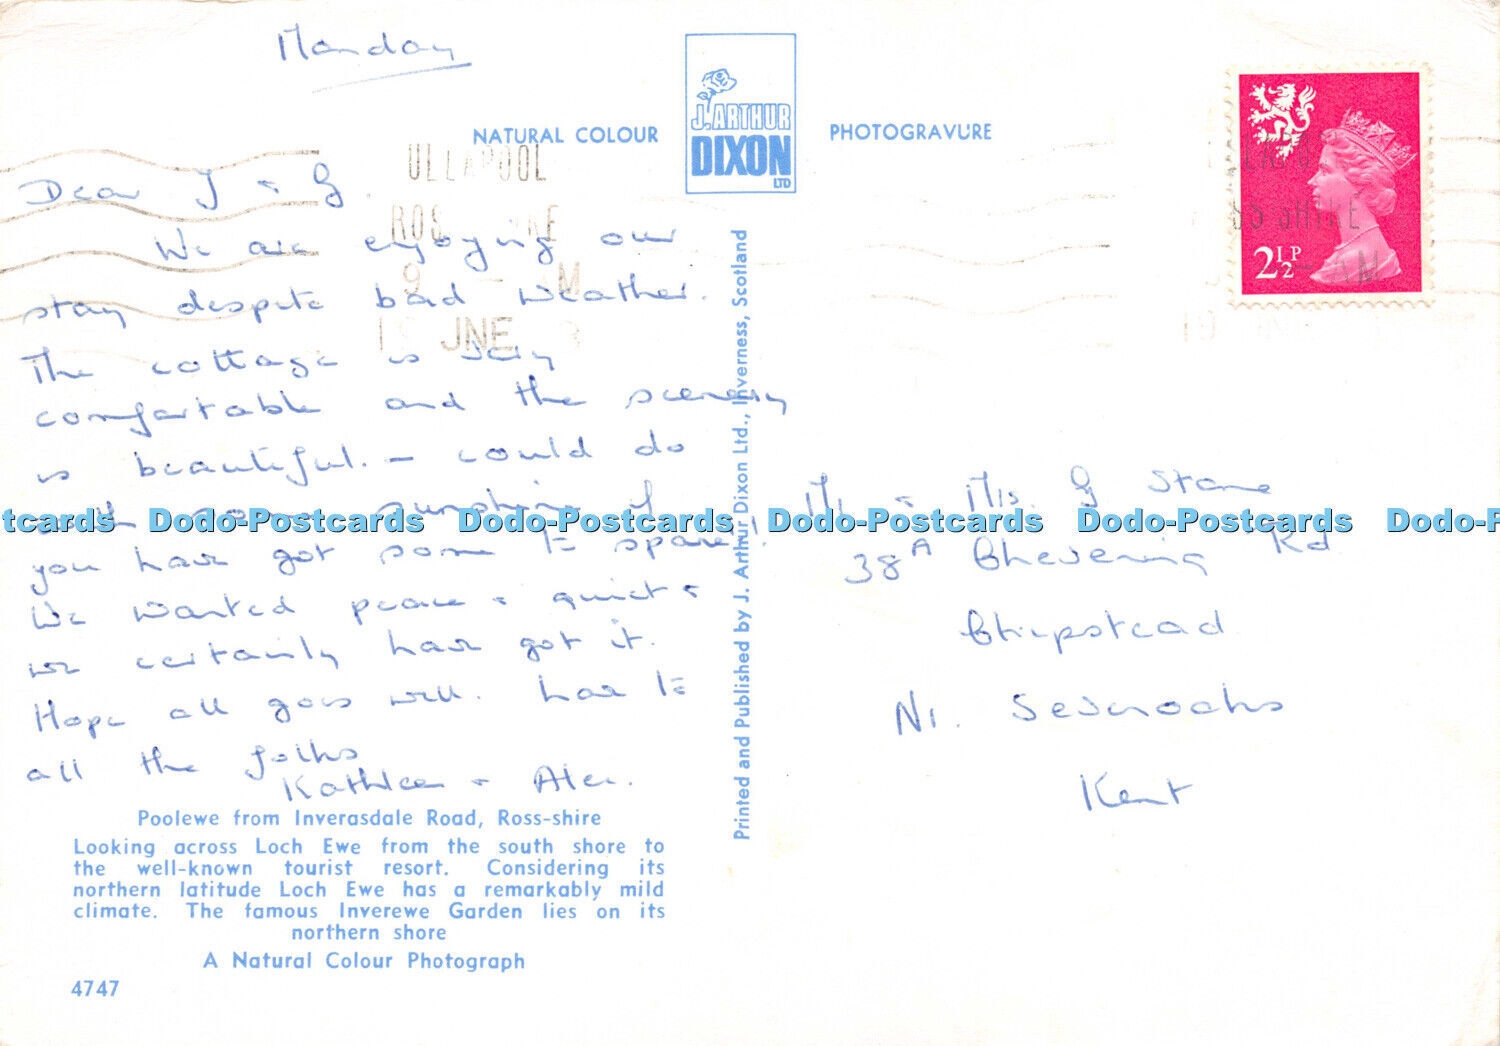 Monday
NATURAL COLOUR
J. ARTHUR
DIXON
LTD
PHOTOGRAVURE
ULLAPOOL
ROS
9 - AM
JNE
2½P
Dear J & G.
We are enjoying our
stay despite bad weather.
The cottage is very
comfortable and the scenery
is beautiful. — could do
with some sunshine if
you have got some to spare!
We wanted peace & quiet &
we certainly have got it.
Hope all goes well. Love to
all the folks
Kathleen & Alec.
Mr & Mrs. G Stone
38A Chevening Rd
Chipstead
Nr. Sevenoaks
Kent
Printed and Published by J. Arthur Dixon Ltd., Inverness, Scotland
Dodo-Postcards Dodo-Postcards Dodo-Postcards Dodo-Postcards
Poolewe from Inverasdale Road, Ross-shire
Looking across Loch Ewe from the south shore to
the well-known tourist resort. Considering its
northern latitude Loch Ewe has a remarkably mild
climate. The famous Inverewe Garden lies on its
northern shore
A Natural Colour Photograph
4747